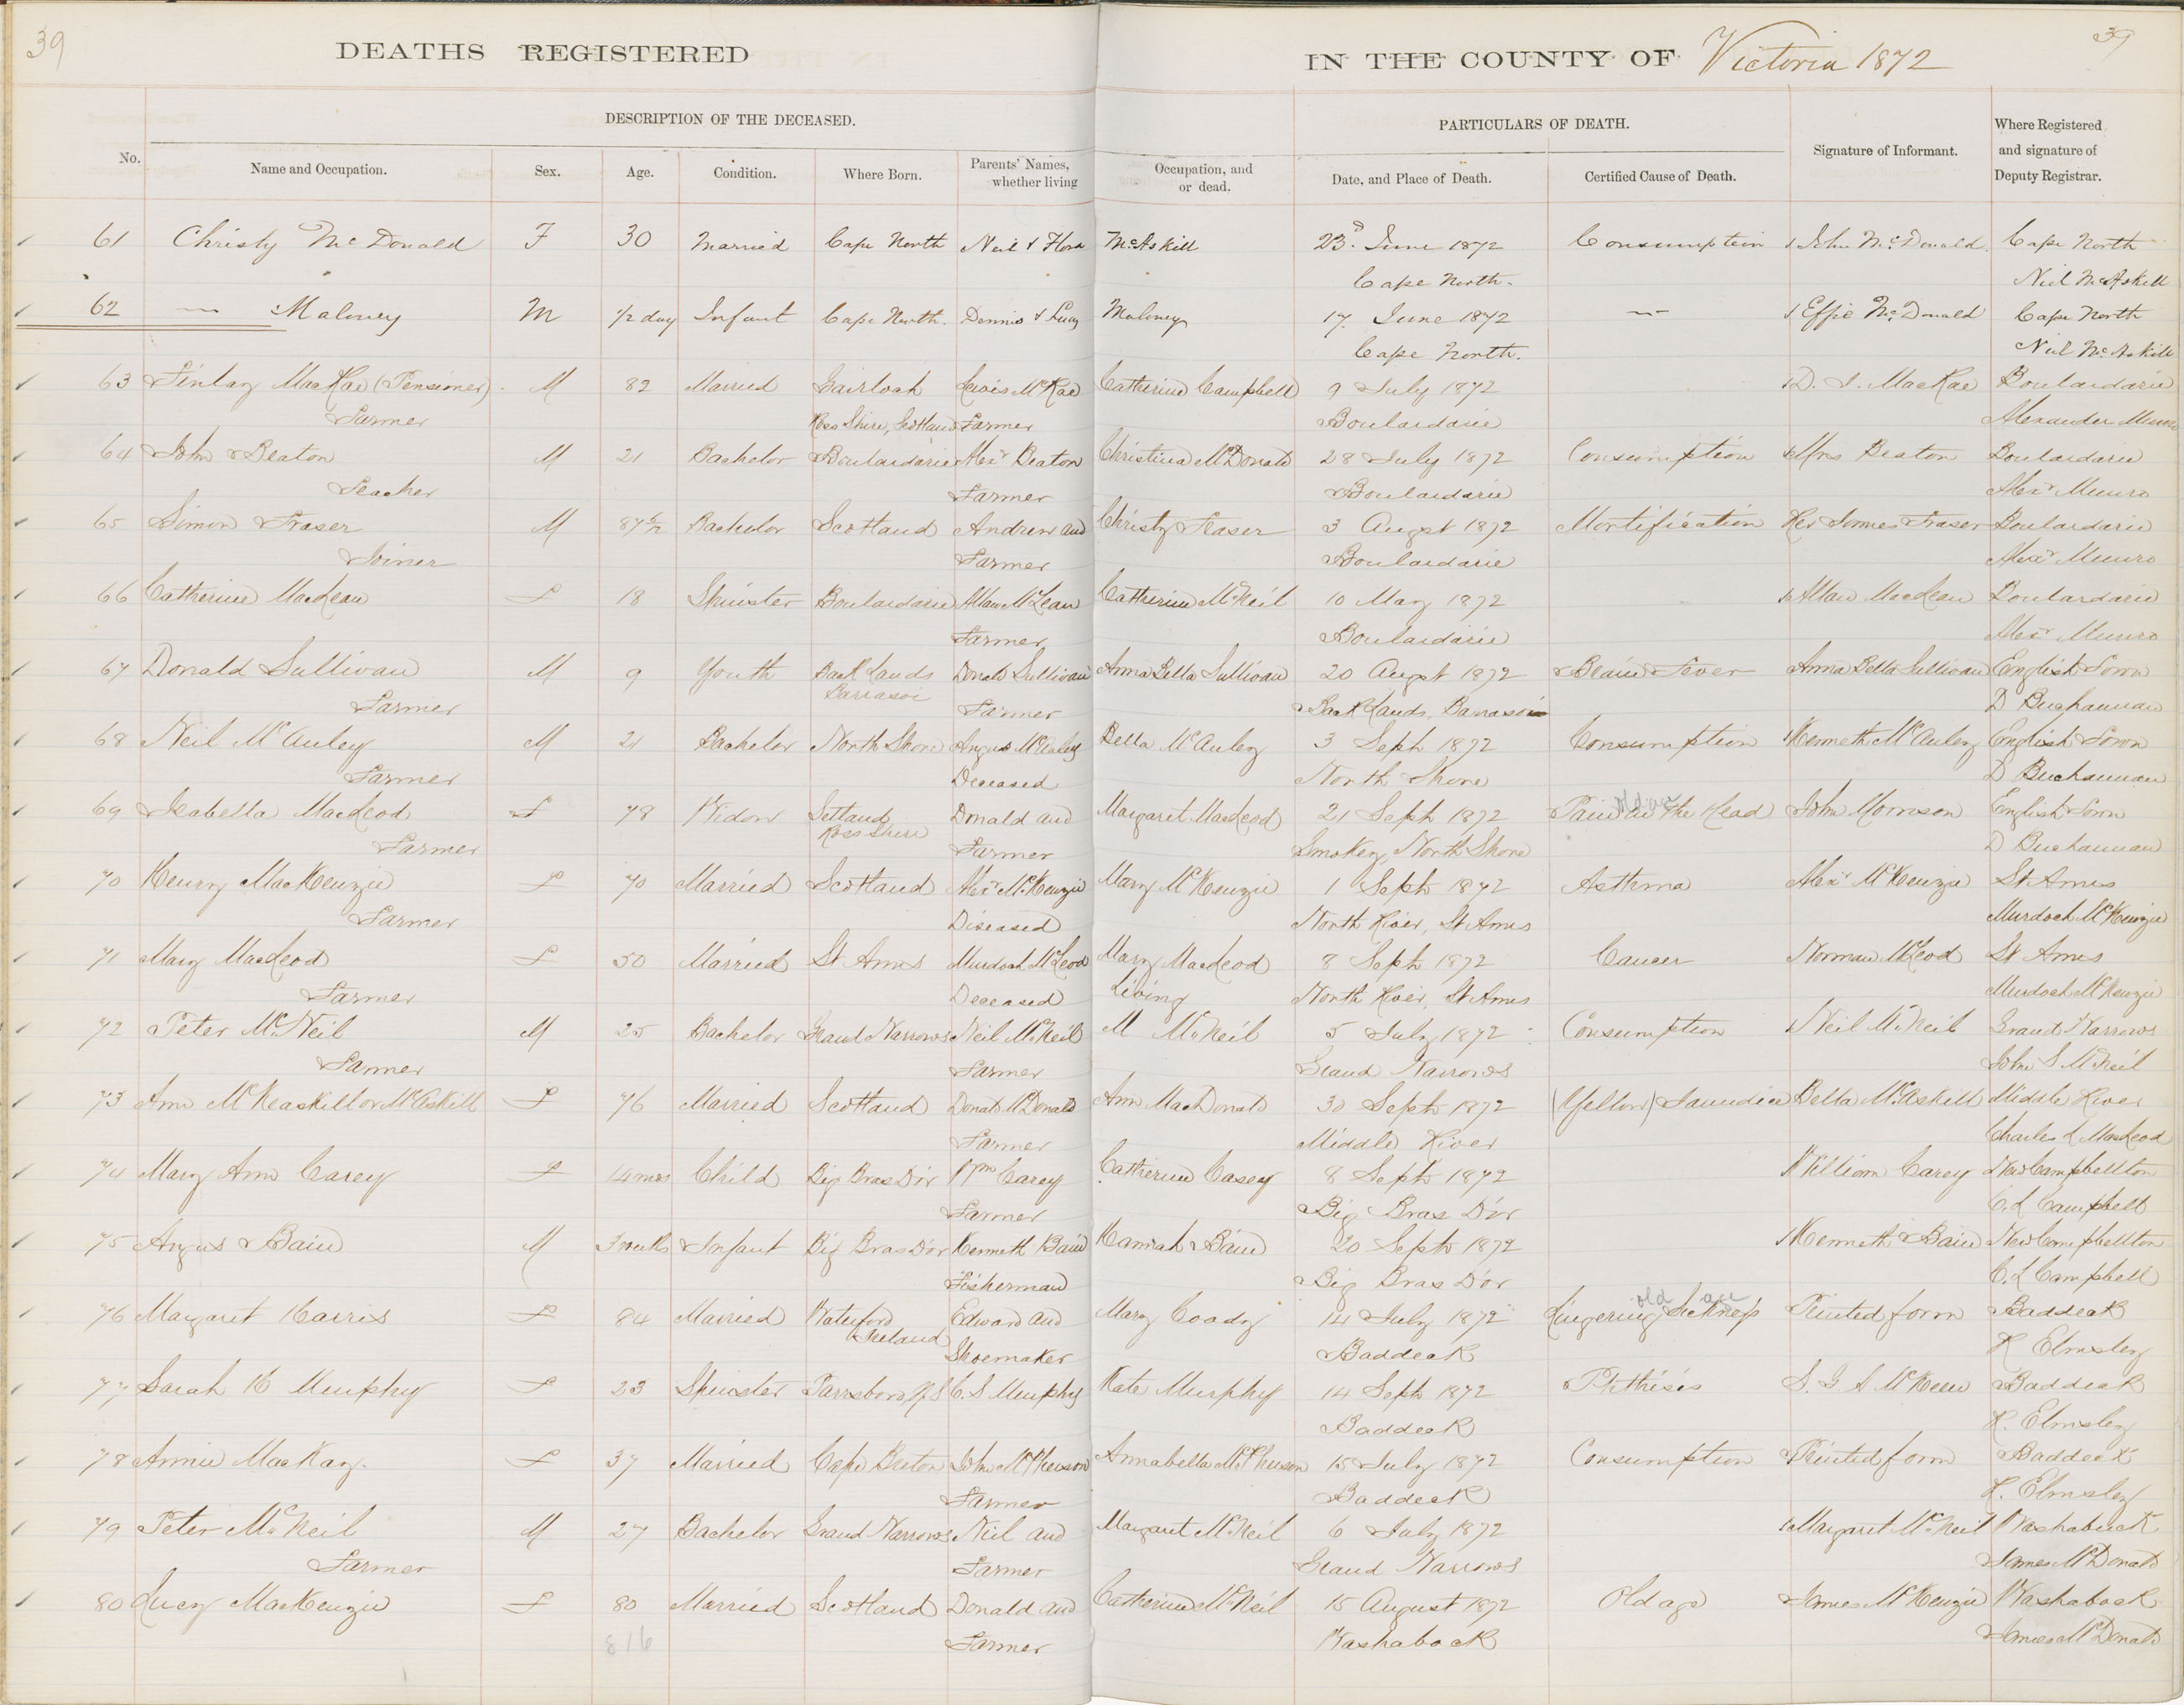 39
39
DEATHS REGISTERED IN THE COUNTY OF Victoria 1872
DESCRIPTION OF THE DECEASED. PARTICULARS OF DEATH.
No. Name and Occupation. Sex. Age. Condition. Where Born. Parents' Names, whether living Occupation, and or dead. Date, and Place of Death. Certified Cause of Death. Signature of Informant. Where Registered and signature of Deputy Registrar.
61 Christy McDonald F 30 Married Cape North Neil & Flora McAskill 23d. June 1872 Consumption John McDonald Cape North
Cape North. Neil McAskill
62 — Maloney M 1/2 day Infant Cape North. Dennis & Lucy Maloney 17. June 1872 — Effie McDonald Cape North
Cape North. Neil McAskill
63 Finlay MacRae (Pensioner) M 82 Married Gairloch Lewis McRae Catherine Campbell 9 July 1872 D. J. MacRae Boulardarie
Farmer Ross Shire, Scotland Farmer Boulardarie Alexander Munro
64 John Beaton M 21 Bachelor Boulardarie Alexr Beaton Christina McDonald 28 July 1872 Consumption Mrs Beaton Boulardarie
Teacher Farmer Boulardarie Alexr Munro
65 Simon Fraser M 87 Bachelor Scotland Andrew and Christy Fraser 3 Augst 1872 Mortification Rev James Fraser Boulardarie
Joiner Farmer Boulardarie Alexr Munro
66 Catherine MacLean F 18 Spinster Boulardarie Allan McLean Catherine McNeil 10 May 1872 Allan MacLean Boulardarie
Farmer Boulardarie Alexr Munro
67 Donald Sullivan M 9 Youth Back Lands Donald Sullivan Anna Bella Sullivan 20 Augst 1872 Brain Fever Anna Bella Sullivan English Town
Farmer Barrasoi Farmer Back Lands, Barrasoi D Buchannan
68 Neil McAuley M 21 Bachelor North Shore Angus McAuley Bella McAuley 3 Sept 1872 Consumption Kenneth McAuley English Town
Farmer Deceased North Shore D Buchannan
69 Isabella MacLeod F 78 Widow Scotland Donald and Margaret MacLeod 21 Sept 1872 Pain in the Head old age John Morrison English Town
Farmer Ross Shire Farmer Smokey, North Shore D Buchannan
70 Henry MacKenzie F 70 Married Scotland Alexr McKenzie Mary McKenzie 1 Sept 1872 Asthma Alexr McKenzie St Anns
Farmer Diseased North River, St Anns Murdoch McKenzie
71 Mary MacLeod F 50 Married St Anns Murdoch McLeod Mary MacLeod 8 Sept 1872 Cancer Norman McLeod St Anns
Farmer Deceased Living North River, St Anns Murdoch McKenzie
72 Peter McNeil M 25 Bachelor Grand Narrows Neil McNeil M McNeil 5 July 1872 Consumption Neil McNeil Grand Narrows
Farmer Farmer Grand Narrows John S McNeil
73 Ann McKeaskill or McAskill F 76 Married Scotland Donald McDonald Ann MacDonald 30 Sept 1872 (Yellow) Jaundice Bella McAskill Middle River
Farmer Middle River Charles L MacLeod
74 Mary Ann Carey F 14 mos Child Big Bras D'or Wm Carey Catherine Casey 8 Sept 1872 William Carey New Campbellton
Farmer Big Bras D'or C. L Campbell
75 Angus Bain M 3 Infant Big Bras D'or Kenneth Bain Hannah Bain 20 Sept 1872 Kenneth Bain New Campbellton
Fisherman Big Bras D'or C. L Campbell
76 Margaret Harris F 84 Married Waterford Edward and Mary Coady 14 July 1872 Lingering Sickness old age Printed form Baddeck
Ireland Shoemaker Baddeck R Elmsley
77 Sarah H Murphy F 23 Spinster Parrsboro N.S C. S Murphy Kate Murphy 14 Sept 1872 Phthisis S. G A McKeen Baddeck
Baddeck R. Elmsley
78 Annie MacKay. F 37 Married Cape Breton John McPherson Annabella McPherson 15 July 1872 Consumption Printed form Baddeck
Farmer Baddeck R. Elmsley
79 Peter McNeil M 27 Bachelor Grand Narrows Neil and Margaret McNeil 6 July 1872 Margaret McNeil Washabuck
Farmer Farmer Grand Narrows James McDonald
80 Lucy MacKenzie F 80 Married Scotland Donald and Catherine McNeil 15 August 1872 Old age James McKenzie Washaback
816 Farmer Washaback James McDonald